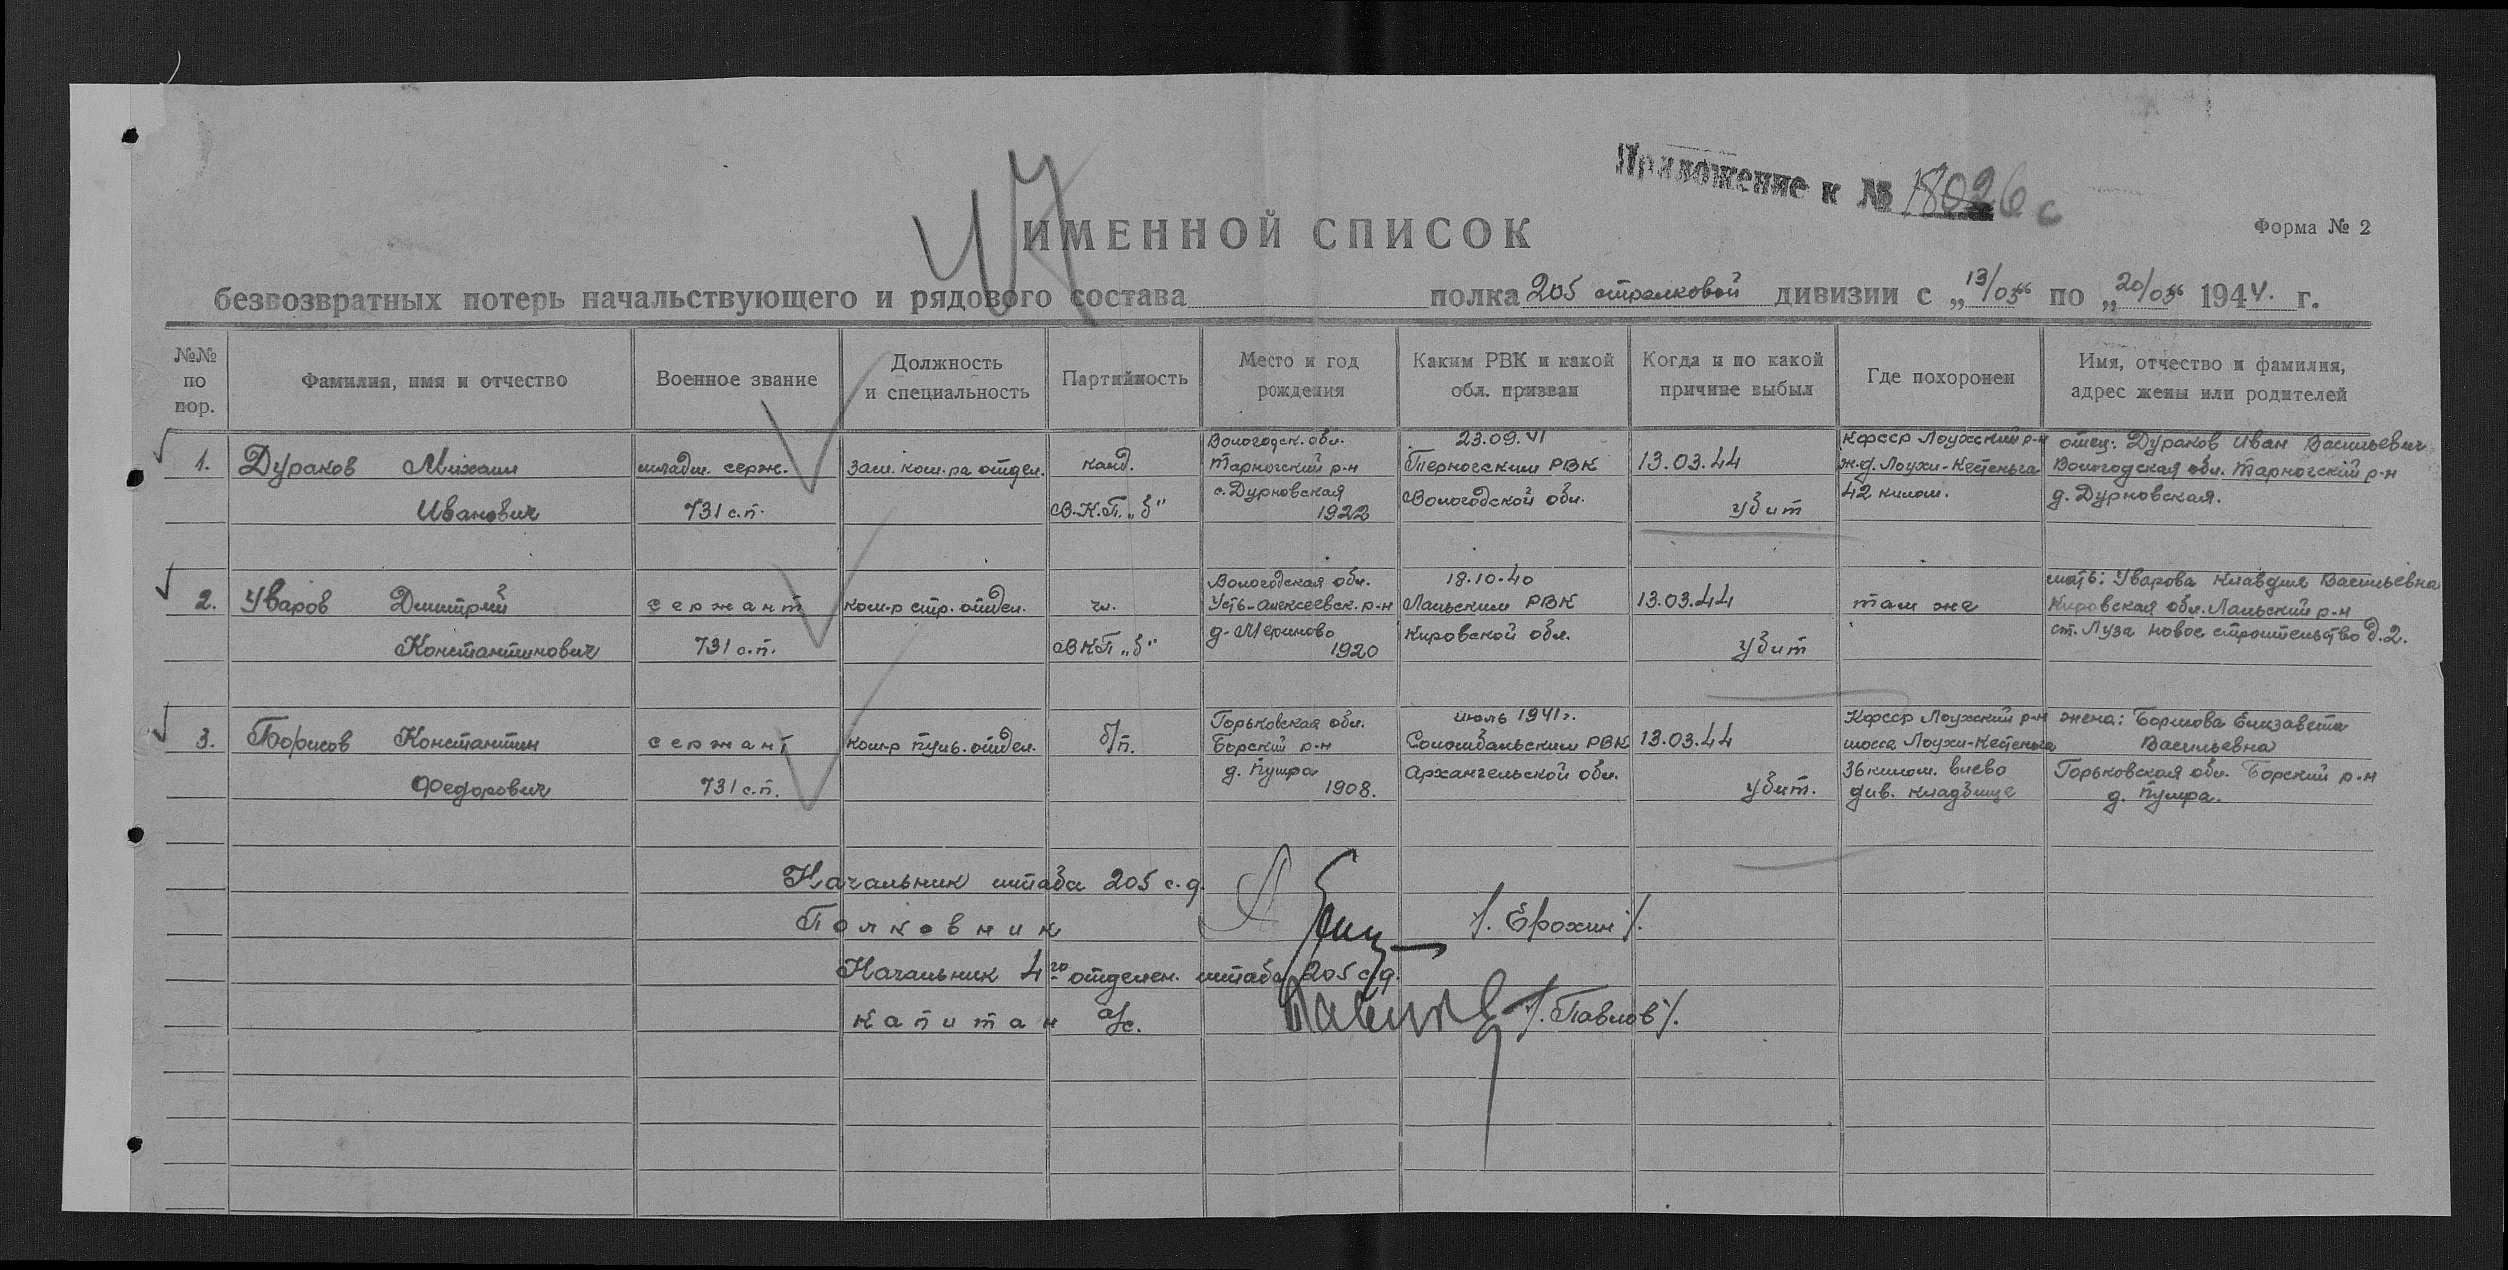 Приложение к № 18026с
47
ИМЕННОЙ СПИСОК
Форма № 2
безвозвратных потерь начальствующего и рядового состава полка 205 стрелковой дивизии с „13/03“ по „20/03“ 1944. г.
№№ по пор.
Фамилия, имя и отчество
Военное звание
Должность и специальность
Партийность
Место и год рождения
Каким РВК и какой обл. призван
Когда и по какой причине выбыл
Где похоронен
Имя, отчество и фамилия, адрес жены или родителей
1.
Дураков Михаил
Иванович
младш. серж.
731 с.п.
зам. ком-ра отдел.
канд.
В.К.П.„б“
Вологодск. обл.
Тарногский р-н
с. Дурновская
1922
23.09.41
Терногским РВК
Вологодской обл.
13.03.44
убит
КФССР Лоухский р-н
ж.д. Лоухи-Кестеньга
42 килом.
отец: Дураков Иван Васильевич
Вологодская обл. Тарногский р-н
д. Дурновская.
2.
Уваров Дмитрий
Константинович
сержант
731 с.п.
ком-р стр. отдел.
чл.
ВКП„б“
Вологодская обл.
Усть-Алексеевск. р-н
д. Мериново
1920
18.10.40
Лальским РВК
Кировской обл.
13.03.44
убит
там же
мать: Уварова Клавдия Васильевна
Кировская обл. Лальский р-н
ст. Луза новое строительство д. 2.
3.
Борисов Константин
Федорович
сержант
731 с.п.
ком-р пульо. отдел.
б/п.
Горьковская обл.
Борский р-н
д. Пумра
1908.
июль 1941г.
Соломбальским РВК
Архангельской обл.
13.03.44
убит.
КФССР Лоухский р-н
шоссе Лоухи-Кестеньга
36 килом. влево
див. кладбище
жена: Борисова Елизавета
Васильевна
Горьковская обл. Борский р-н
д. Пумра.
Начальник штаба 205 с.д.
Полковник /. Ерохин /.
Начальник 4го отделен. штаба 205 с.д.
капитан а/с. Павлов /. Павлов /.